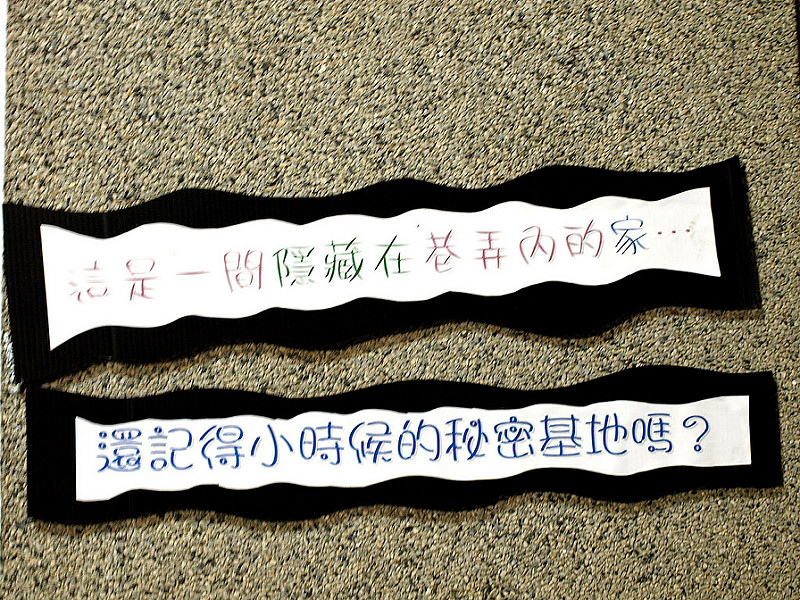 這是一間隱藏在巷弄內的家…
還記得小時候的秘密基地嗎？